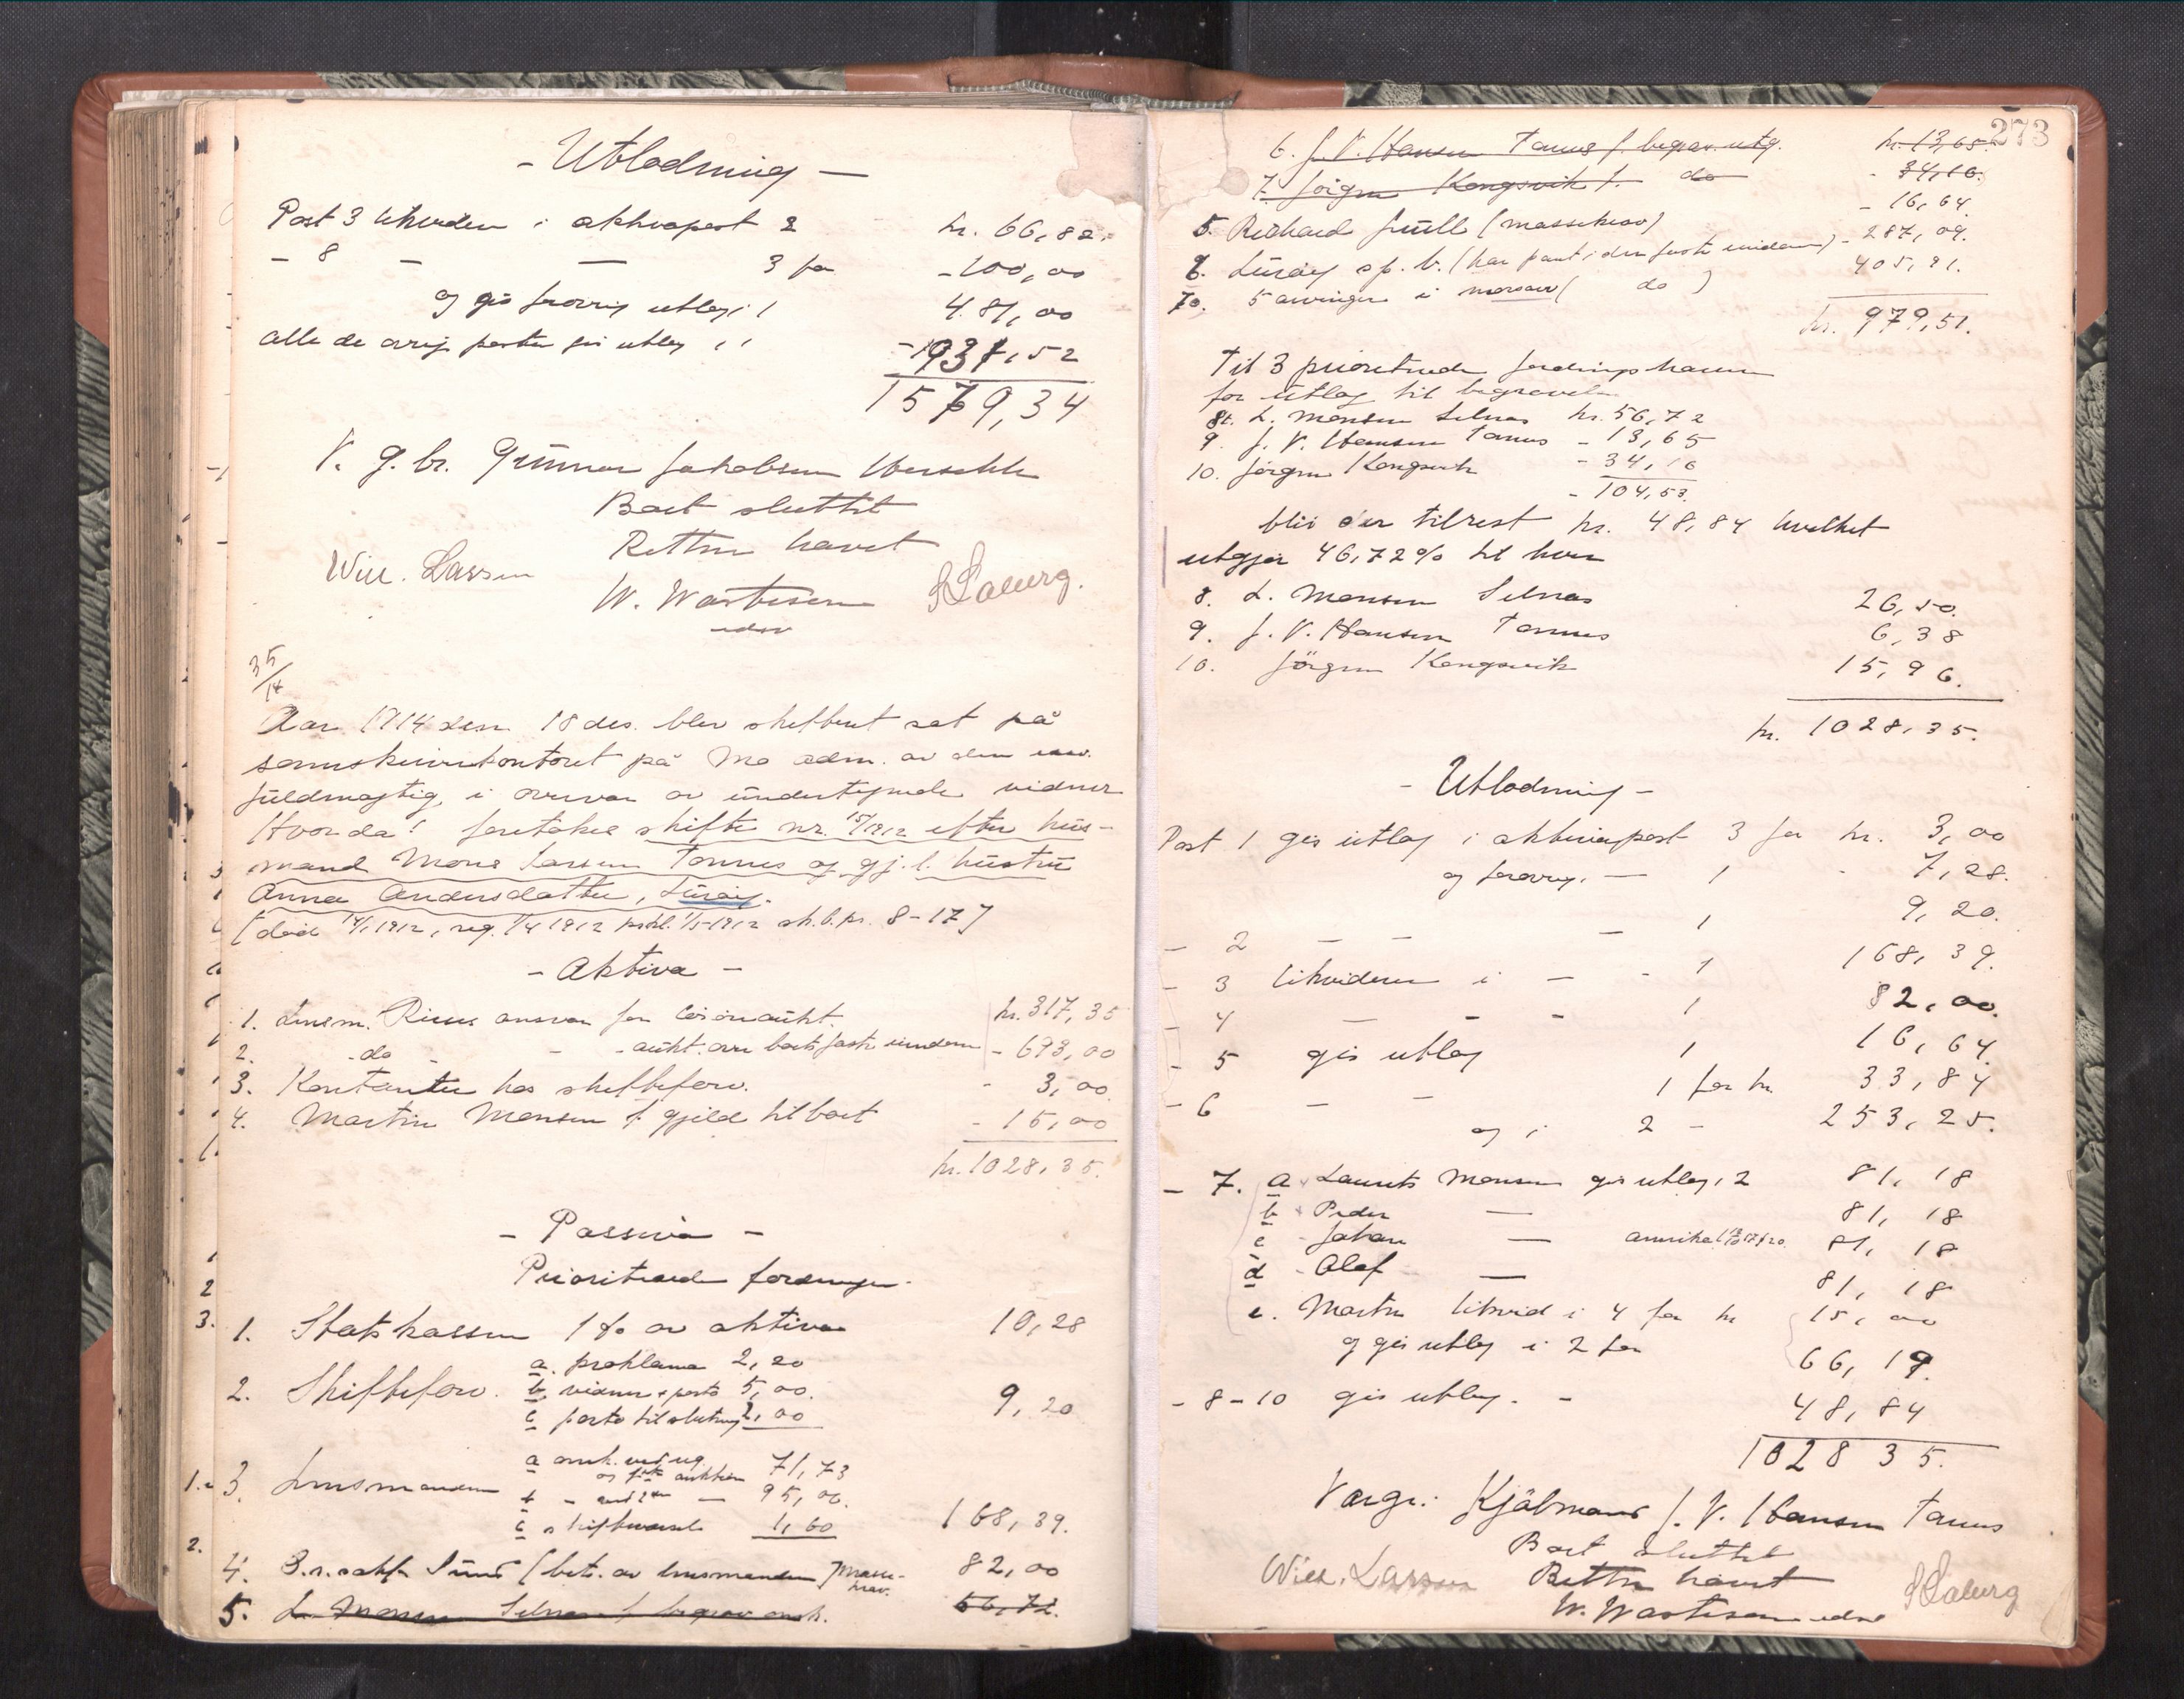 - Utlodning -
Post 3 likvideres i aktivapost 2 kr. 66,82.
- 8 - — 3 for - 100,00
og gis forøvrig utlæg i 1 481,00
alle de øvrige poster gis utlæg i 1 - 931,52
1579,34
V. g. br. Gunnar Jakobsen
Boet sluttet
Retten hævet
Will. Larsen W. Wartesen
edsv
35/14
Aar 1914 den 18 des. blev skifteret sat på
sorenskriverkontoret på Mo adm. av den edsv.
fuldmægtig, i overvær av undertegnede vidner
Hvorda! foretokes skifte nr. 15/1912 efter hus-
mand Mons Larsen Tonnes og gj. l. hustru
Anna Andersdatter, Lurøy.
[død 14/1 1912, reg. 1/4 1912 prokl. 1/5-1912 sk.b.pr. 8-17]
- Aktiva -
1. Lensm. Riises ansvar for løsøreaukt. kr. 317,35
2. - do - - - aukt. over boets faste eiendom - 693,00
3. Kontanter hos skifteforv. - 3,00
4. Martin Monsen f. gjeld til boet - 15,00
kr. 1028,35.
- Passiva -
Prioriterede fordringer.
1. Statskassen 1% av aktiva 10,28
2. Skifteforv. a. proklama 2,20
b. vidner + porto 5,00.
c porto til slutning 2,00 9,20
3. Lensmanden a omk. ved reg.
og 1ste auktion 71,73
b - ved 2den - 95,06.
c skiftevarsel 1,60 168,39.
4. O.r.sakf. Sund (bet. av lensmanden) masse-
krav. 82,00
5. L. Monsen Selnes f. begrav. omk. 56,72.
273
6. J. V. Hansen Tonnes f. begrav. utg. kr. 13,65
7. Jörgen Kongsvik f. do - 34,16.
5. Richard Grüll (massekrav) - 16,64.
6. Lurøy sp. b. (har pant i den faste eiendom) - 287,09.
7. 5 arvinger i morsarv ( do ) 405,91.
kr. 979,51.
Til 3 prioriterede fordringshavere
for utlæg til begravelse
8. L. Monsen Selnes kr. 56,72
9. J. V. Hansen Tonnes - 13,65
10. Jörgen Kongsvik - 34,16
- 104,53.
blir der tilrest kr. 48,84 hvilket
utgjør 46,72% til hver
8. L. Monsen Selnes 26,50.
9. J. V. Hansen Tonnes 6,38
10. Jörgen Kongsvik 15,96.
kr. 1028,35.
- Utlodning -
Post 1 gis utlæg i aktivapost 3 for kr. 3,00
og forøvrig. — 1 - 7,28.
- 2 - - - 1 9,20.
- 3 likvideres i - - 1 168,39.
- 4 - - - 1 82,00.
- 5 gis utlæg 1 16,64.
- 6 - - 1 for kr. 33,84
og i 2 - 253,25.
- 7. a Laurits Monsen gis utlæg i 2 81,18
b Peder — 81,18
c Johan — amerika 81,18
d Olaf — 81,18
e. Martin likvid i 4 for kr 15,00
og gis utlæg i 2 for 66,19.
- 8-10 gis utlæg. - 48,84
1028 35.
Vargr.: Kjøbmand J. V. Hansen Tonnes
Boet sluttet
Will. Larsen Retten hævet
W. Wartesen edsv